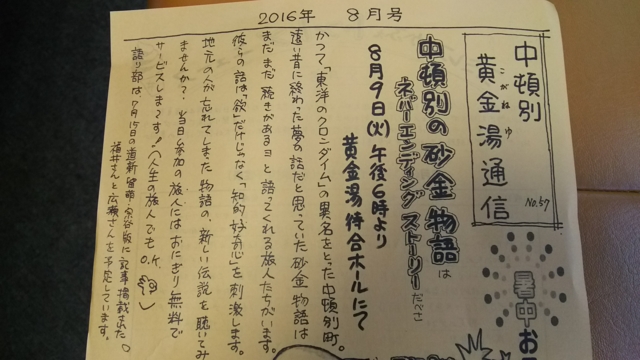 2016年 8月号
中頓別
黄金湯通信
こがねゆ
No.57
暑中お
中頓別の砂金物語は
ネバーエンディングストーリーだべさ
8月9日(火)午後6時より
黄金湯待合ホールにて
かつて「東洋のクロンダイム」の異名をとった中頓別町。
遠い昔に終わった夢の話だと思っていた砂金物語は
まだまだ続きがあるヨと語ってくれる旅人たちがいます。
彼らの話は「欲」だけじゃなく「知的好奇心」を刺激します。
地元の人が忘れてしまた物語の、新しい伝説を聴いてみ
ませんか?当日参加の旅人にはおにぎり無料で
サービスしまてす!(人生の旅人でもO.K.)
語り部は7月15日の道新留萌・宗谷版に記事掲載された
福井さんと広瀬さんを予定しています。